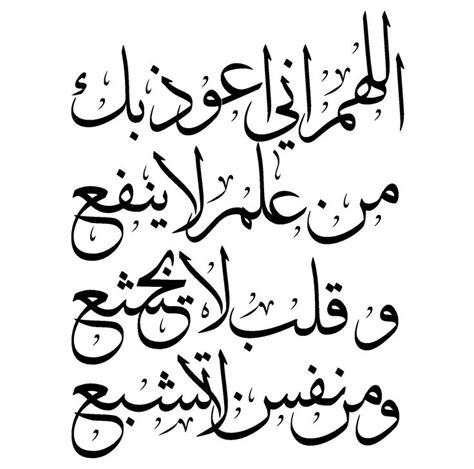 اللهم اني اعوذ بك
من علم لا ينفع
و قلب لا يخشع
ومن نفس لا تشبع